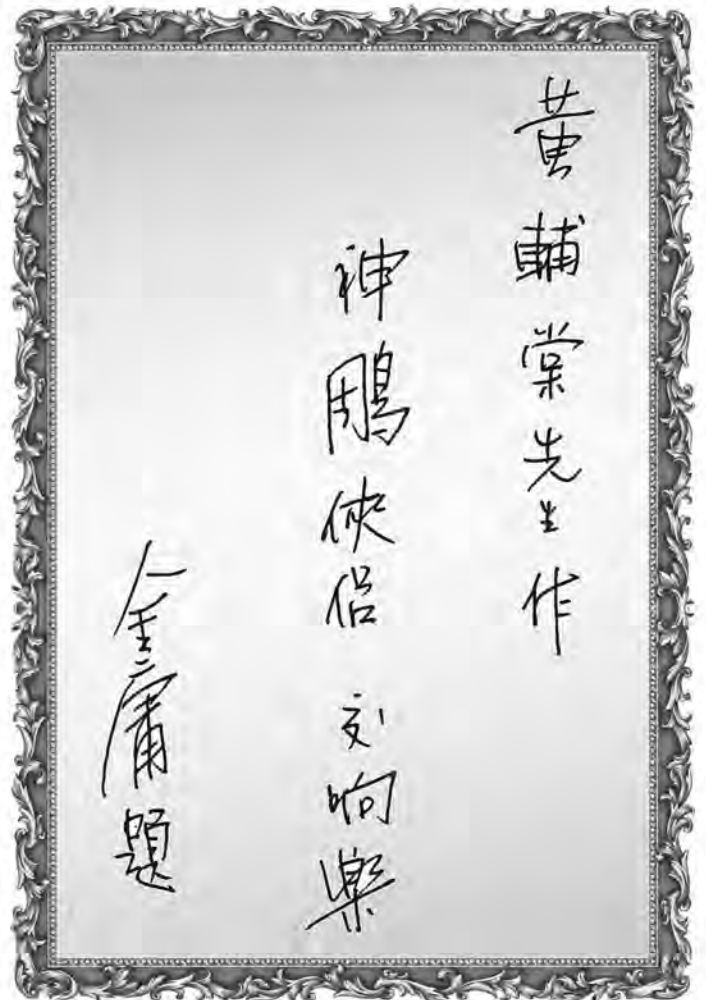 黃輔棠先生作
神鵰俠侶 交响樂
金庸題